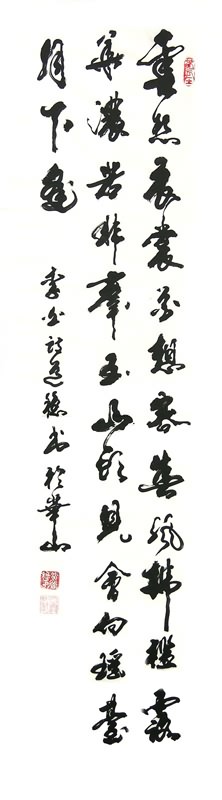 雲想衣裳花想容春風拂檻露
華濃若非羣玉山頭見會向瑤臺
月下逢
李白詩 书於華山